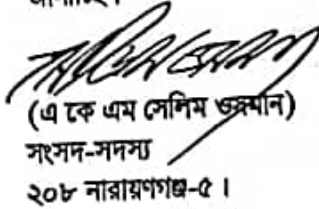 জানাচ্ছি।
(এ কে এম সেলিম ওসমান)
সংসদ-সদস্য
২০৮ নারায়ণগঞ্জ-৫।